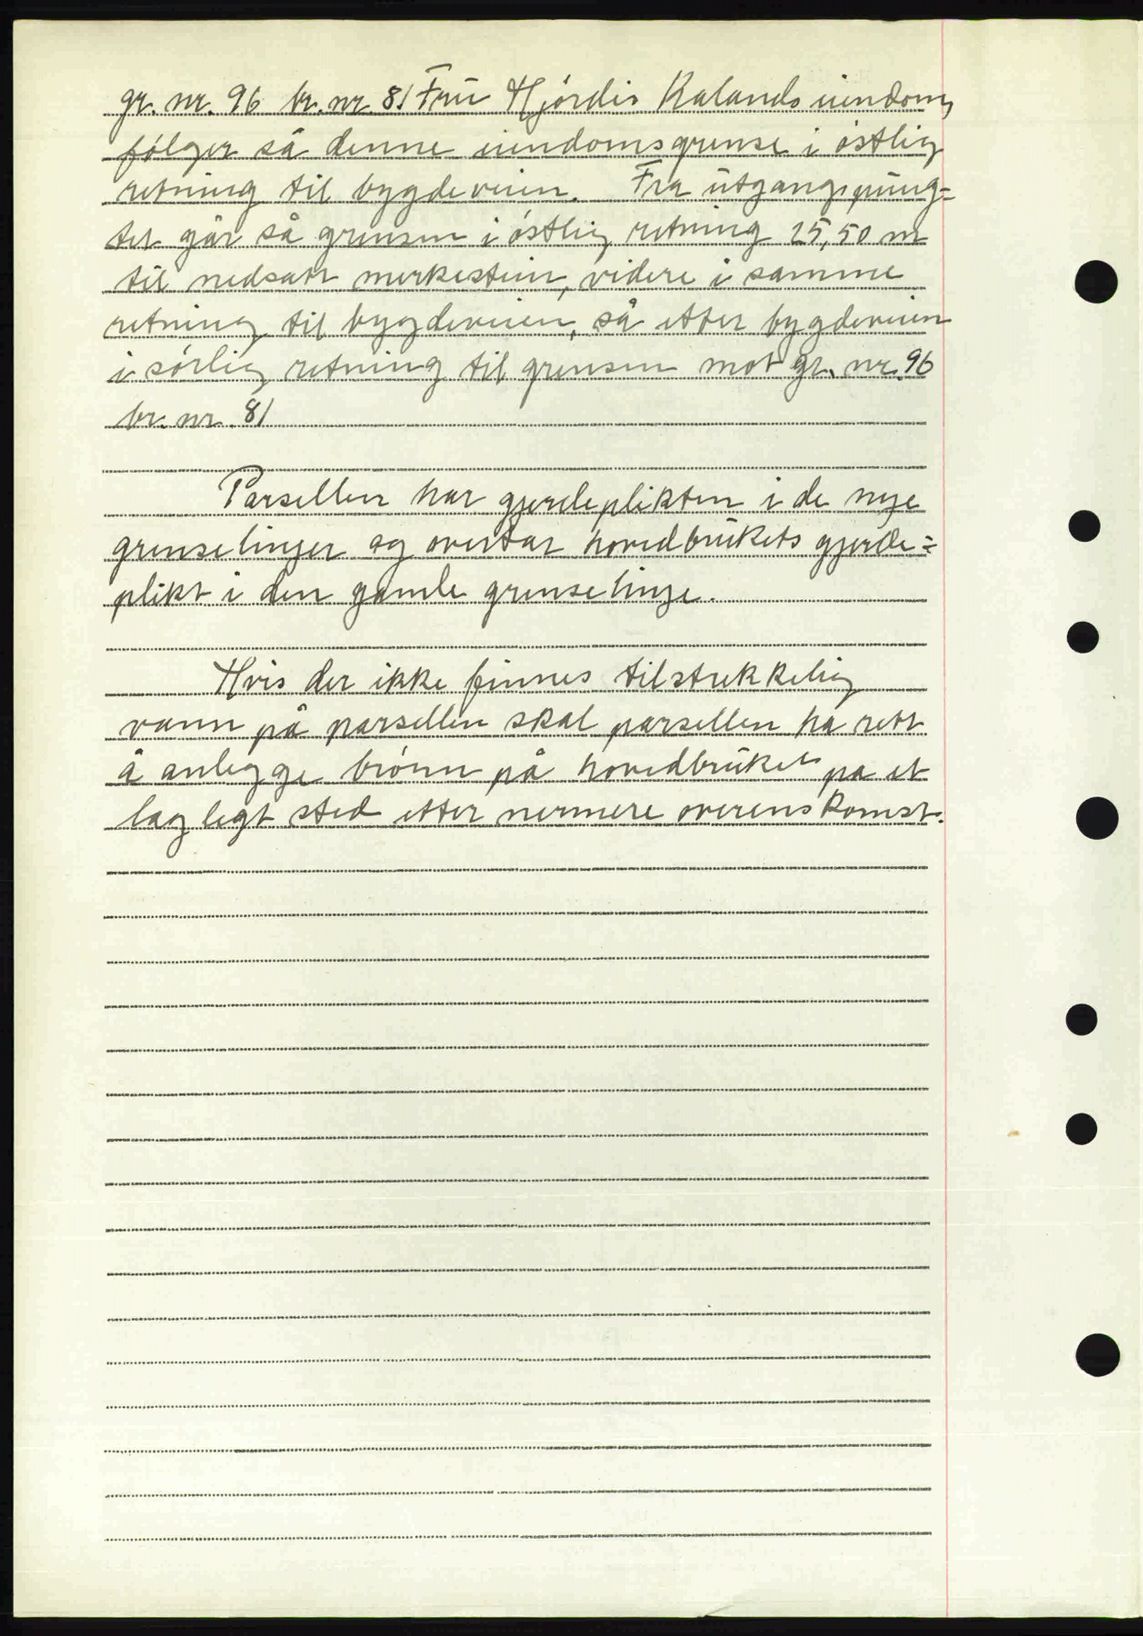 gr. nr. 96 br. nr. 81 Fru Hjørdis Kalands eiendom,
følger så denne eiendomsgrense i østlig
retning til bygdeveien. Fra utgangspung-
tet går så grensen i østlig retning 25,50 m
til nedsatt merkestein, videre i samme
retning til bygdeveien, så etter bygdeveien
i sørlig retning til grensen mot gr. nr. 96
br. nr. 81
Parsellen har gjerdeplikten i de nye
grenselinjer og overtar hovedbrukets gjerde-
plikt i den gamle grenselinje.
Hvis der ikke finnes tilstrekkelig
vann på parsellen skal parsellen ha rett
å anlegge brønn på hovedbruket på et
lagligt sted etter nermere overenskomst.